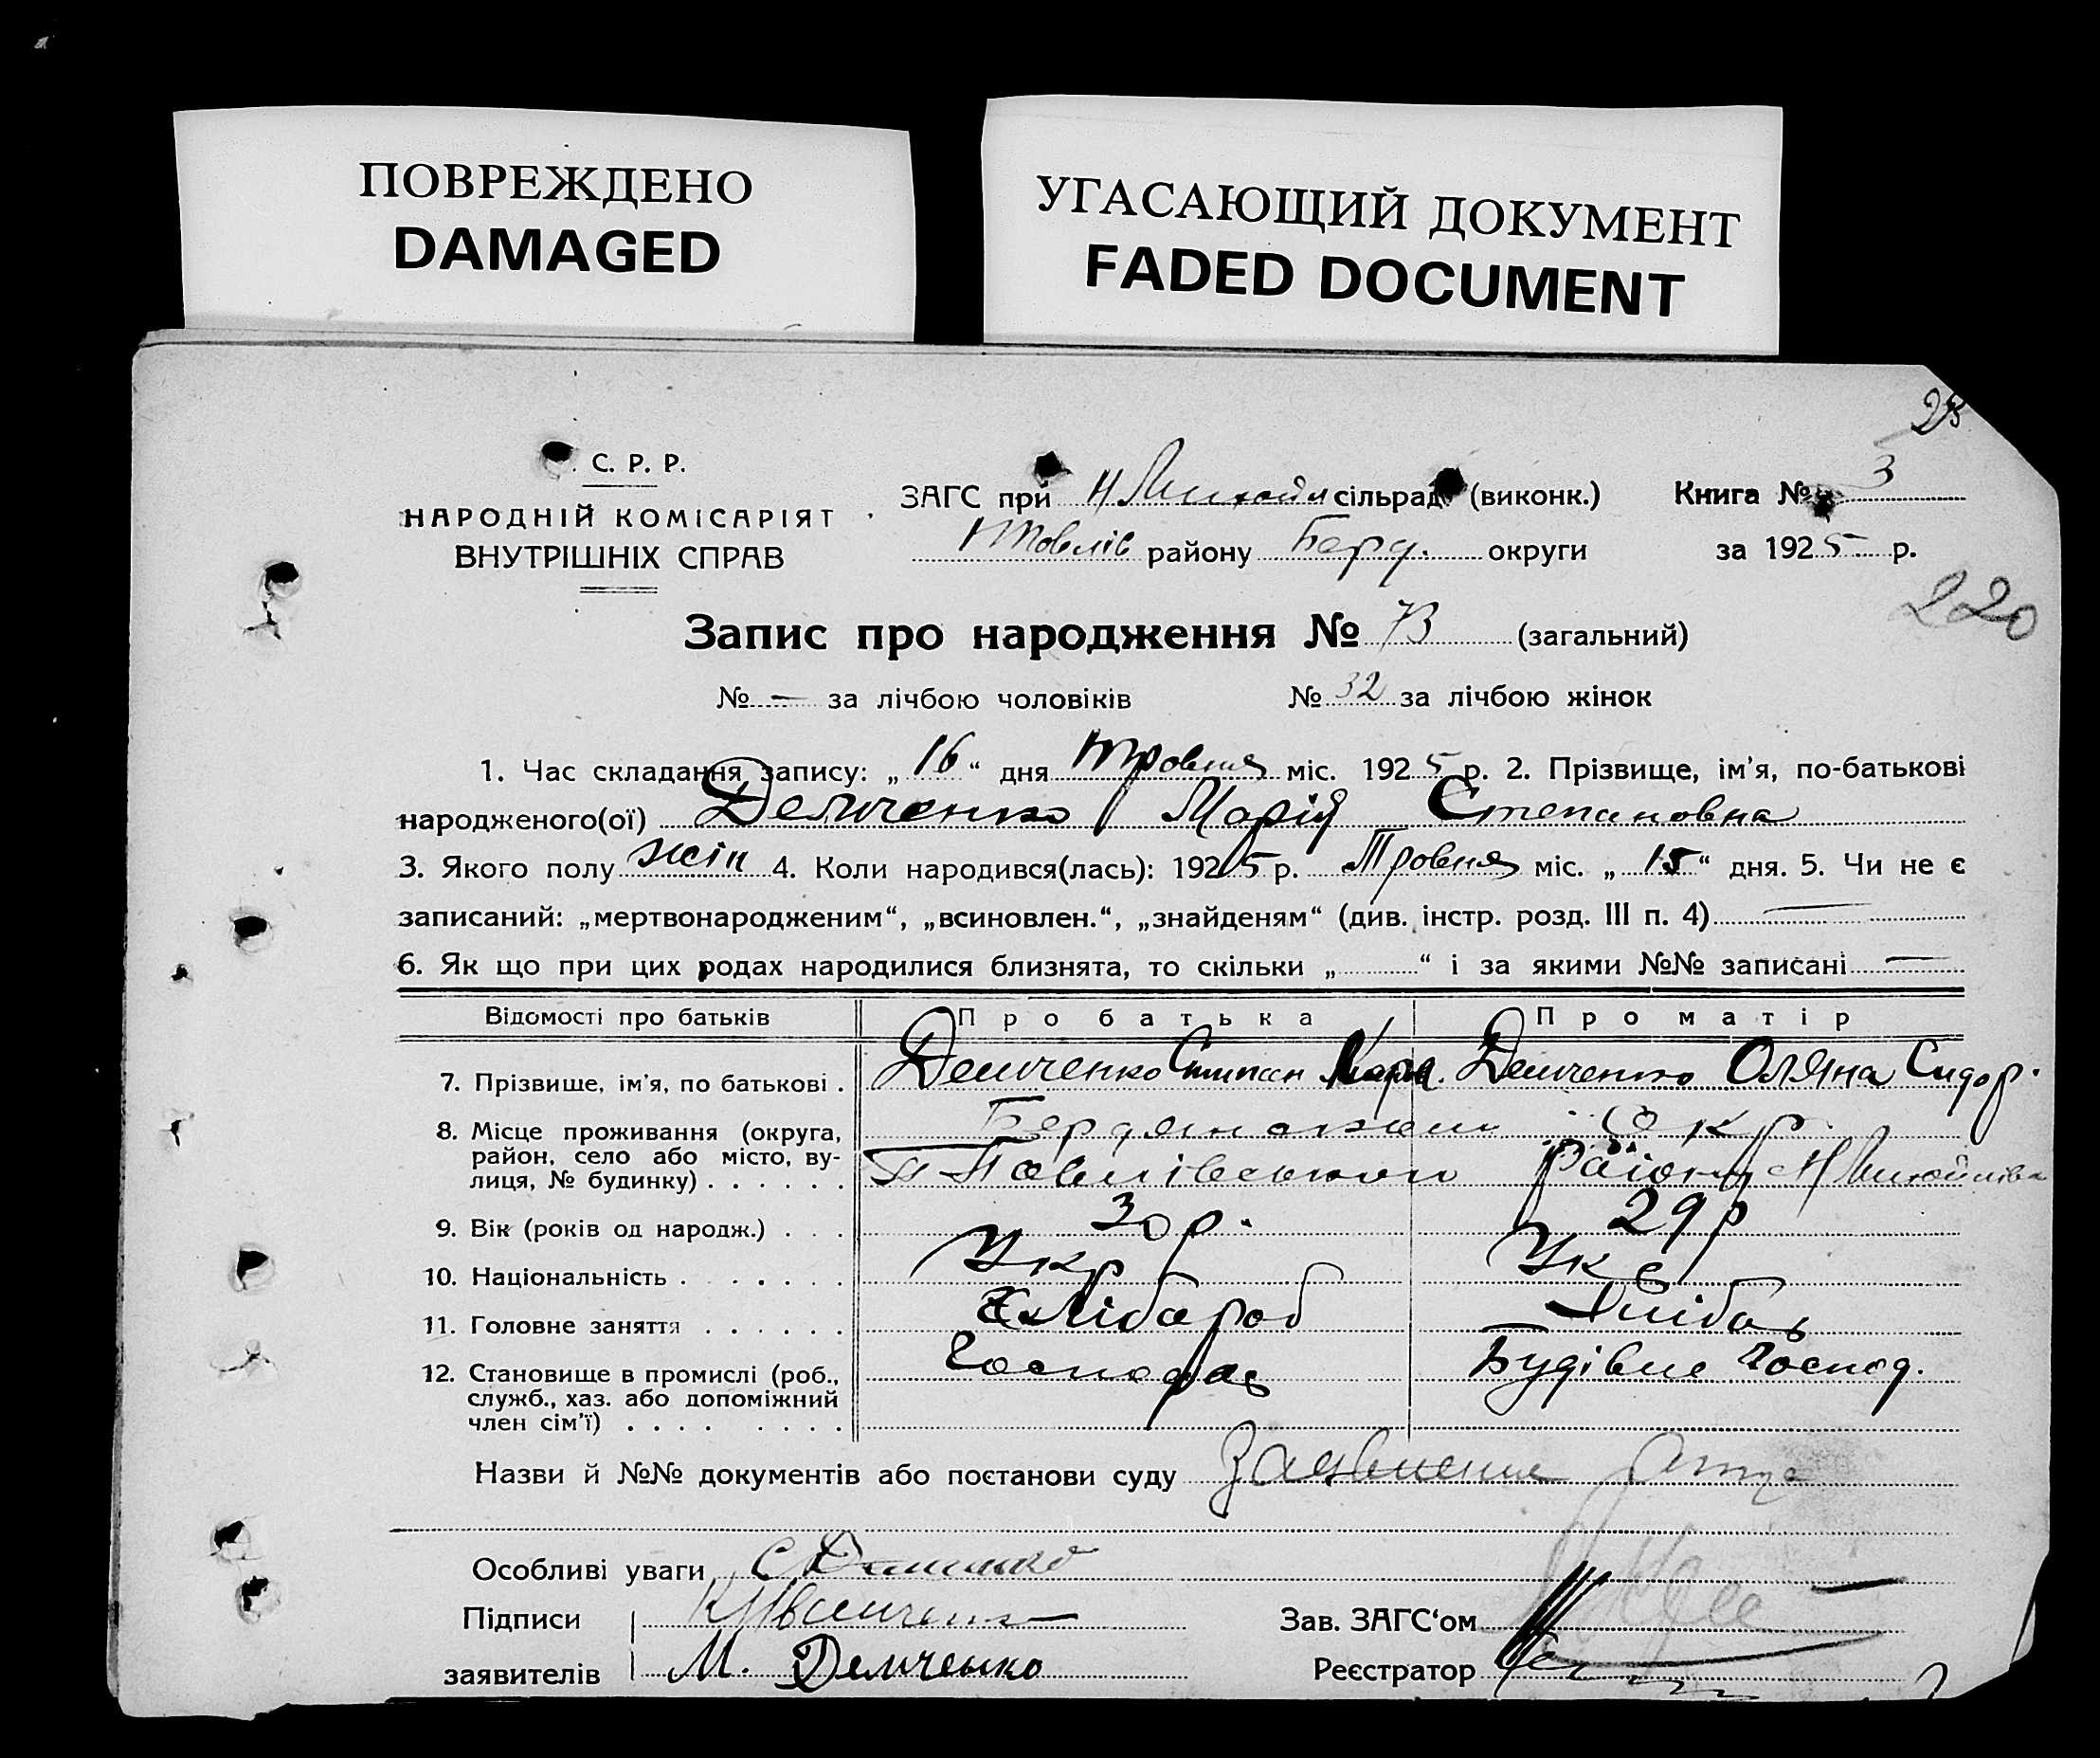 ПОВРЕЖДЕНО
DAMAGED
УГАСАЮЩИЙ ДОКУМЕНТ
FADED DOCUMENT
28
. С. Р. Р.
НАРОДНІЙ КОМІСАРІЯТ
ВНУТРІШНІХ СПРАВ
ЗАГС при Н Михайл сільрад (виконк.) Книга № 3
району Берд. округи за 1925 р.
220
Запис про народження № 73 (загальний)
№ — за лічбою чоловіків № 32 за лічбою жінок
1. Час складання запису: „16“ дня травня міс. 1925 р. 2. Прізвище, ім'я, по-батькові
народженого(ої) Демченко Марія Степановна
3. Якого полу жін 4. Коли народився(лась): 1925 р. Травня міс. „15“ дня. 5. Чи не є
записаний: „мертвонародженим“, „всиновлен.“, „знайденям“ (див. інстр. розд. III п. 4) —
6. Як що при цих родах народилися близнята, то скільки „ “ і за якими №№ записані —
Відомості про батьків Про батька Про матір
7. Прізвище, ім'я, по батькові . Демченко Степан Карп. Демченко Оляна Сидор.
8. Місце проживання (округа, район, село або місто, вулиця, № будинку) . . . . . . Окр.
Павлівського району Н Михайлівка
9. Вік (років од народж.) . . . 30 р. 29 р
10. Національність . . . . . . . Укр Укр
11. Головне заняття . . . . . . Хлібороб
12. Становище в промислі (роб., служб., хаз. або допоміжний член сім'ї) . . . . . . . . Господар Господ.
Назви й №№ документів або постанови суду Заявлення
Особливі уваги С Демченко
Підписи заявителів
М. Демченко
Зав. ЗАГС'ом
Реєстратор